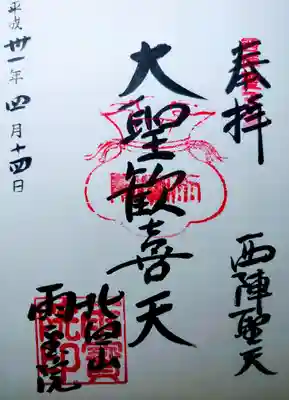 奉拝
西陣聖天
大聖歓喜天
北向山
雨宝院
平成卅一年四月十四日